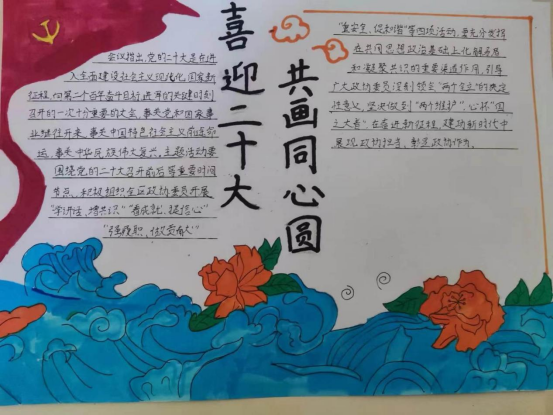 喜迎二十大
共画同心圆
会议指出,党的二十大是在进
入全面建设社会主义现代化国家新
征程、向第二个百年奋斗目标进军的关键时刻
召开的一次十分重要的大会,事关党和国家事
业继往开来,事关中国特色社会主义前途命
运,事关中华民族伟大复兴。主题活动要
围绕党的二十大召开前后等重要时间
节点,积极组织全区政协委员开展
"学讲话、增共识""看成就、提信心"
"强履职、做贡献"
"重安全、促和谐"等四项活动,要充分发挥
在共同思想政治基础上化解矛盾
和凝聚共识的重要渠道作用,引导
广大政协委员深刻领会"两个确立"的决定
性意义,坚决做到"两个维护",心怀"国
之大者",在奋进新征程、建功新时代中
展现政协担当,彰显政协作为。